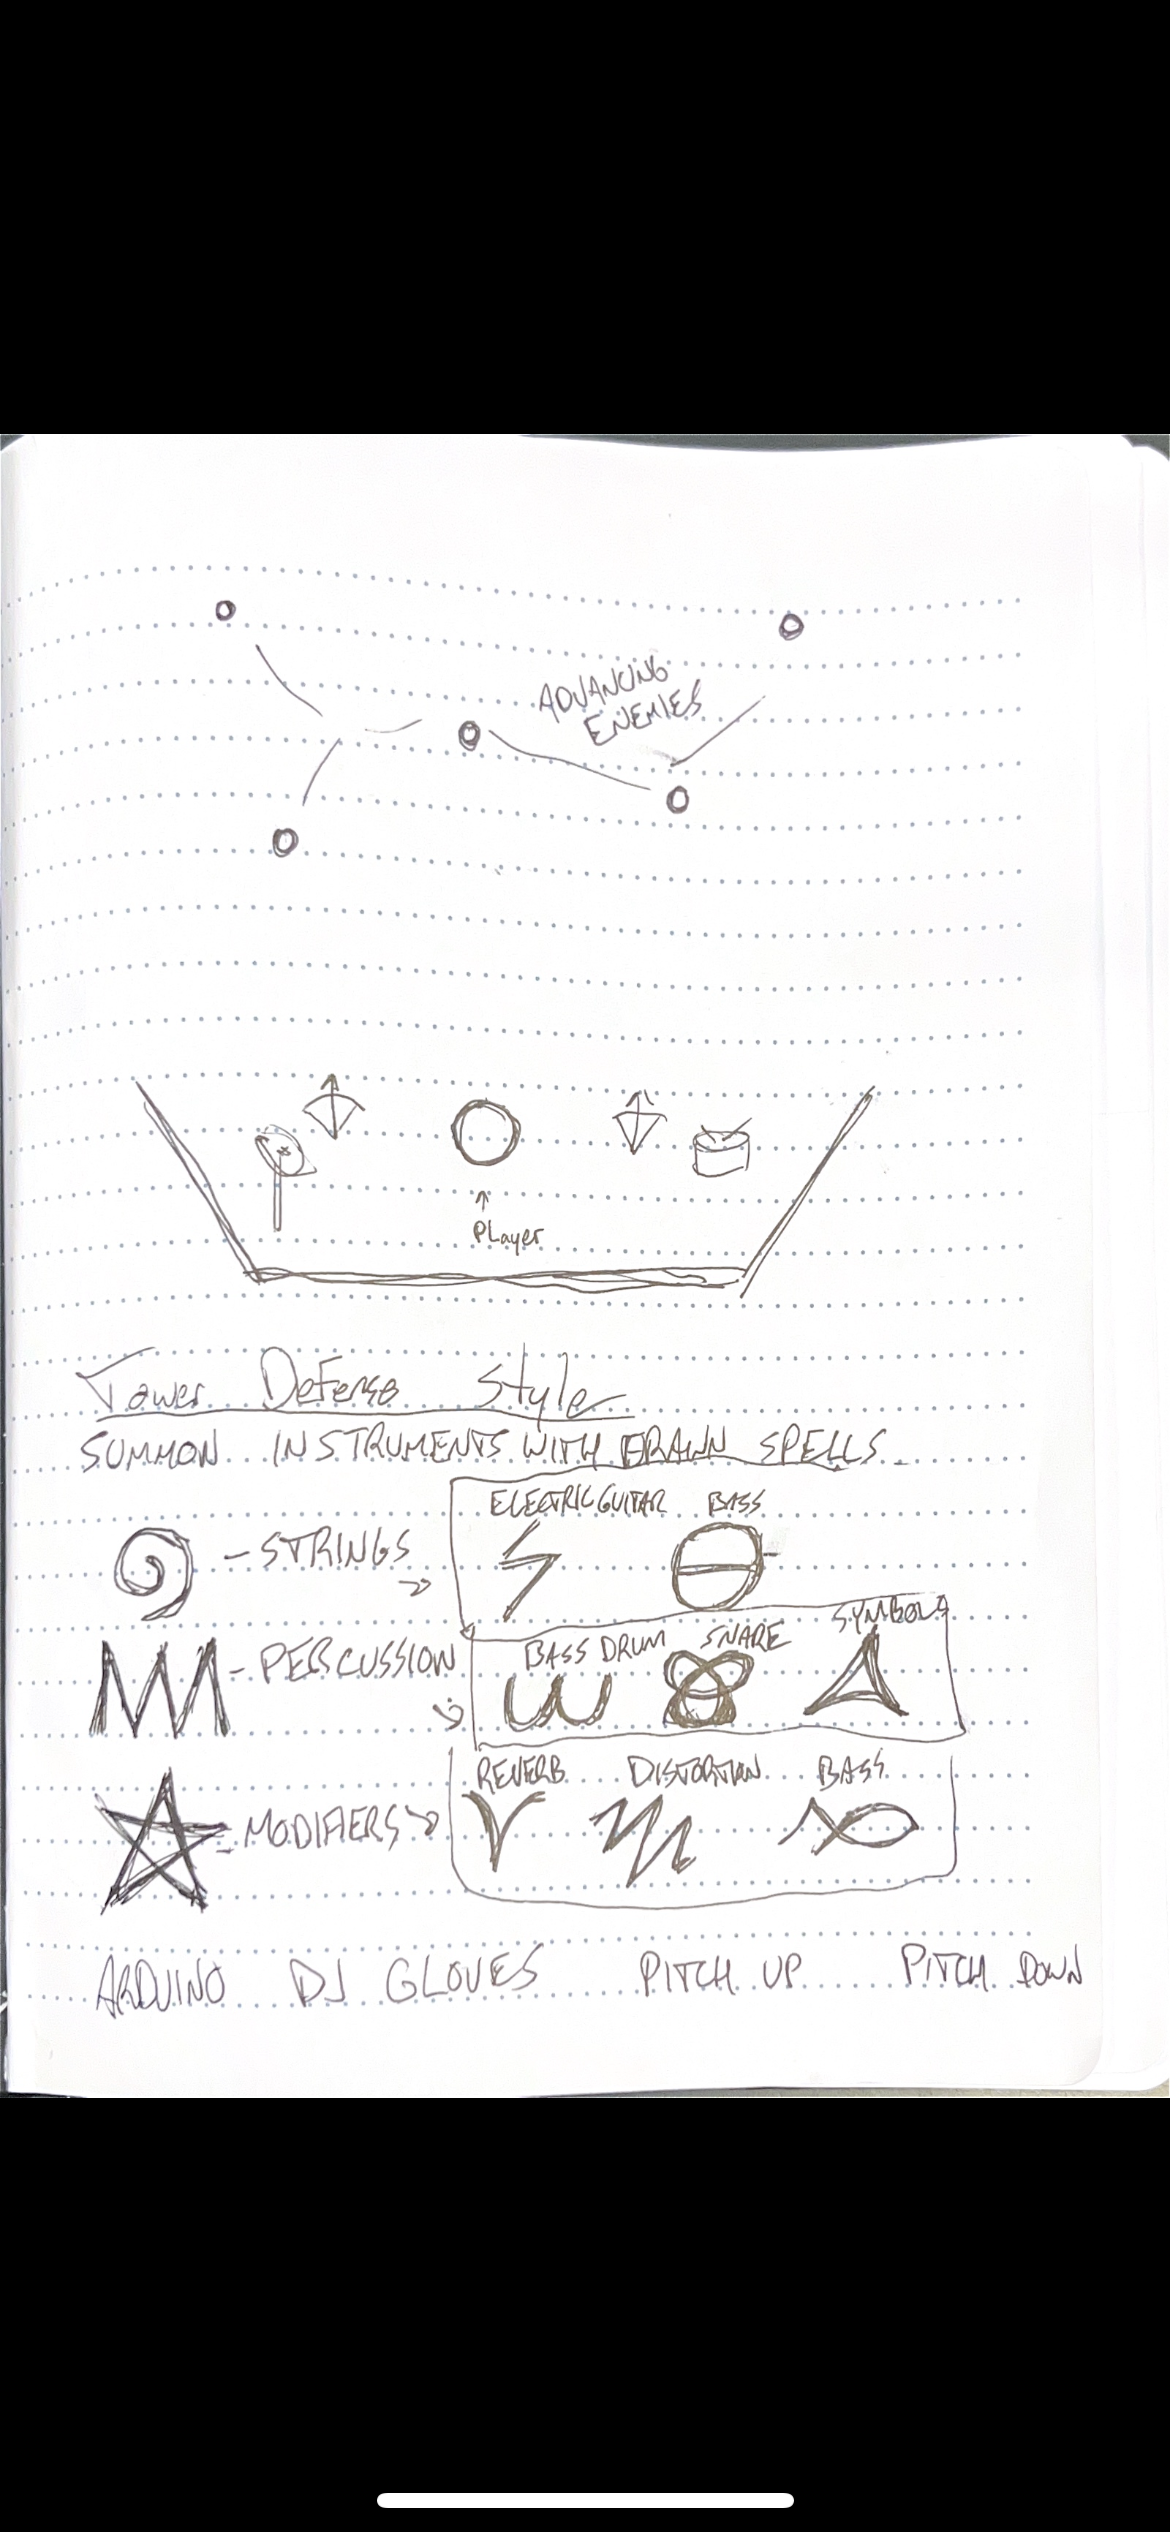 ADVANCING
ENEMIES
PLayer
Tower Defense Style
SUMMON INSTRUMENTS WITH DRAWN SPELLS
ELECTRIC GUITAR BASS
- STRINGS
SYMBOLS
- PERCUSSION
BASS DRUM SNARE
REVERB DISTORTION BASS
- MODIFIERS
ARDUINO DJ GLOVES PITCH UP PITCH DOWN